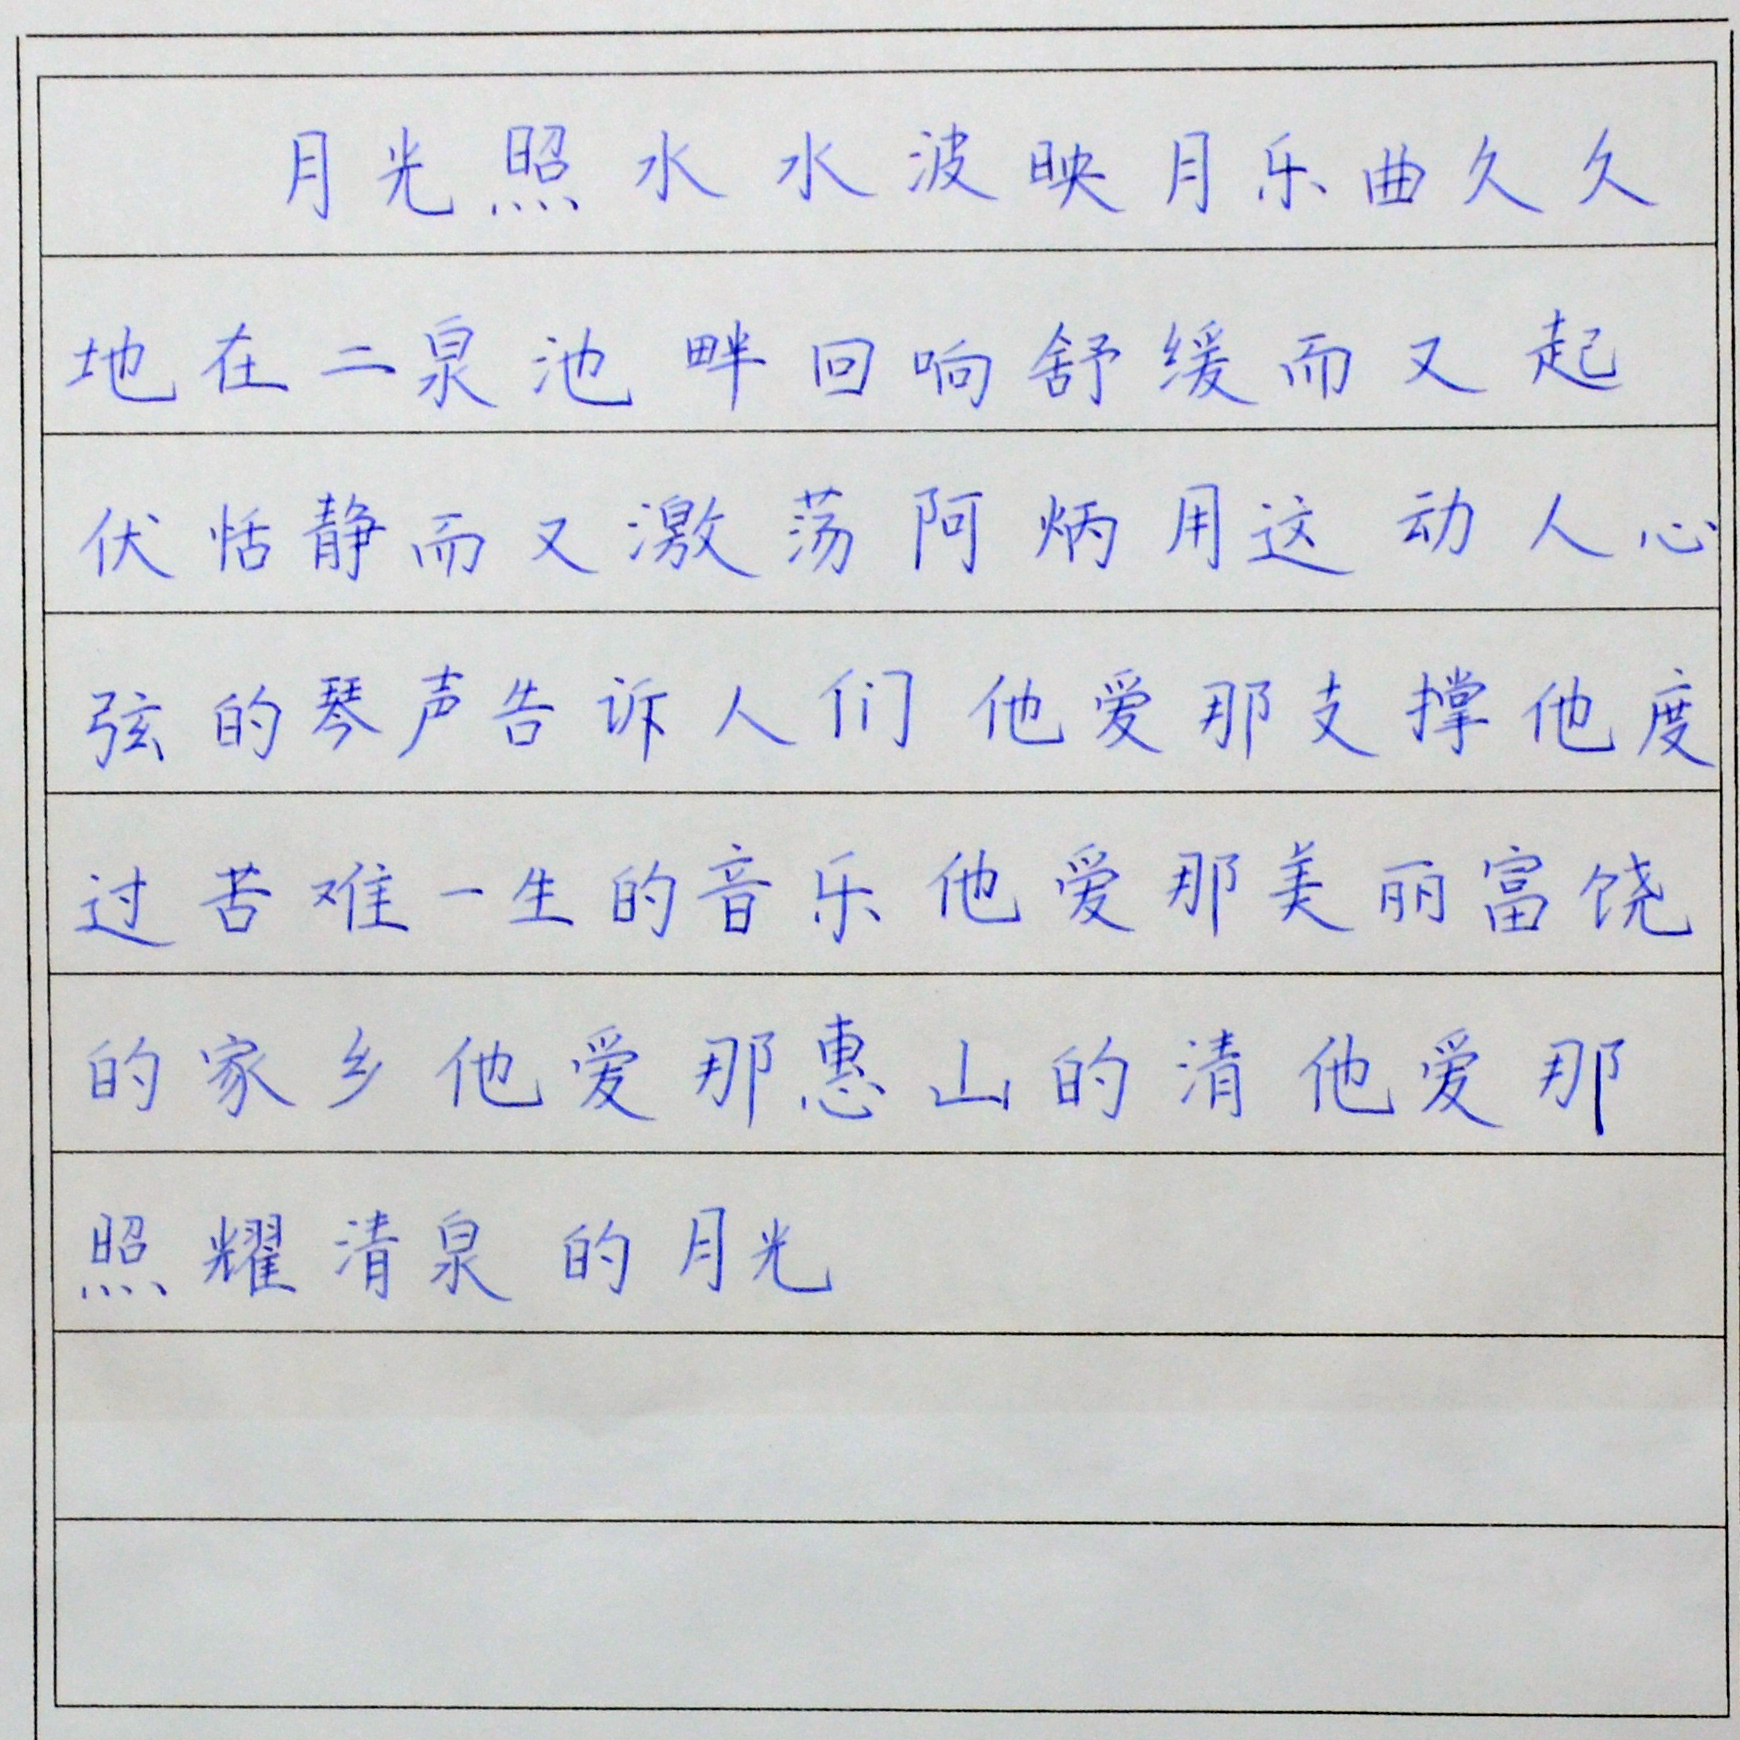 月光照水水波映月乐曲久久
地在二泉池畔回响舒缓而又起
伏恬静而又激荡阿炳用这动人心
弦的琴声告诉人们他爱那支撑他度
过苦难一生的音乐他爱那美丽富饶
的家乡他爱那惠山的清他爱那
照耀清泉的月光